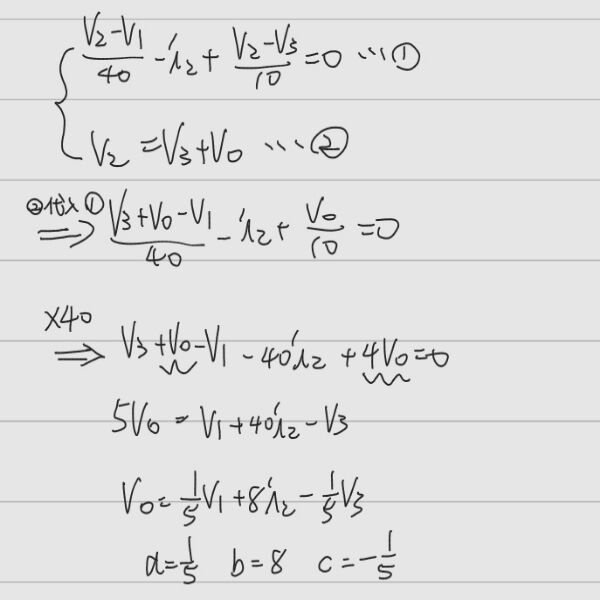 (V₂-V₁)/40 - i₂ + (V₂-V₃)/10 = 0 …①
V₂ = V₃+V₀ …②
②代入① ⇒ (V₃+V₀-V₁)/40 - i₂ + V₀/10 = 0
×40 ⇒ V₃+V₀-V₁ - 40i₂ + 4V₀ = 0
5V₀ = V₁+40i₂-V₃
V₀ = 1/5 V₁ + 8i₂ - 1/5 V₃
a = 1/5 b = 8 c = -1/5